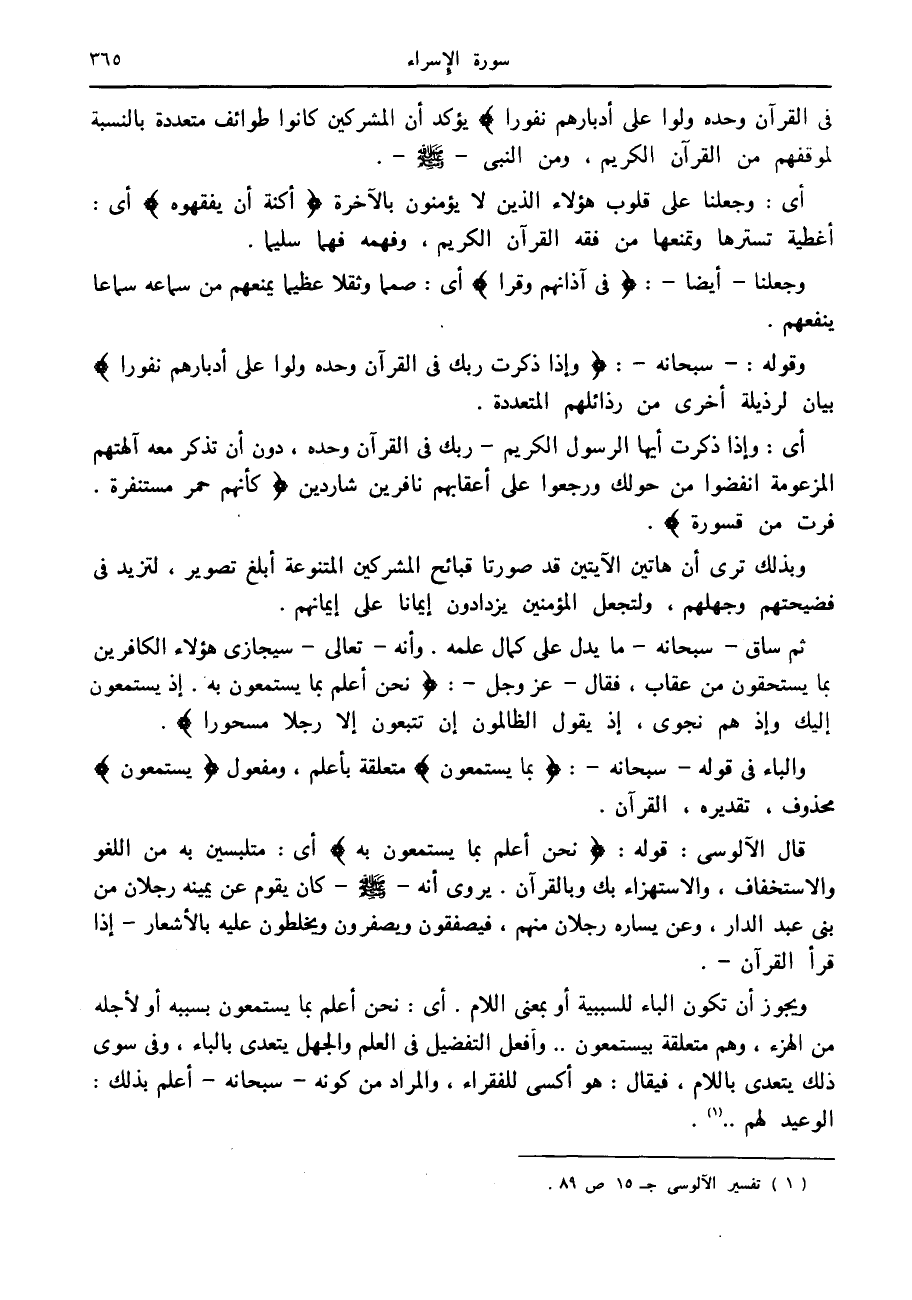 سورة الإسراء ٣٦٥
فى القرآن وحده ولوا على أدبارهم نفورا ﴾ يؤكد أن المشركين كانوا طوائف متعددة بالنسبة
لموقفهم من القرآن الكريم ، ومن النبى – ﷺ – .
أى : وجعلنا على قلوب هؤلاء الذين لا يؤمنون بالآخرة ﴿ أكنة أن يفقهوه ﴾ أى :
أغطية تسترها وتمنعها من فقه القرآن الكريم ، وفهمه فهما سليما .
وجعلنا – أيضا – : ﴿ فى آذانهم وقرا ﴾ أى : صمما وثقلا عظيما يمنعهم من سماعه سماعا
ينفعهم .
وقوله : – سبحانه – : ﴿ وإذا ذكرت ربك فى القرآن وحده ولوا على أدبارهم نفورا ﴾
بيان لرذيلة أخرى من رذائلهم المتعددة .
أى : وإذا ذكرت أيها الرسول الكريم – ربك فى القرآن وحده ، دون أن تذكر معه آلهتهم
المزعومة انفضوا من حولك ورجعوا على أعقابهم نافرين شاردين ﴿ كأنهم حمر مستنفرة .
فرت من قسورة ﴾ .
وبذلك ترى أن هاتين الآيتين قد صورتا قبائح المشركين المتنوعة أبلغ تصوير ، لتزيد فى
فضيحتهم وجهلهم ، ولتجعل المؤمنين يزدادون إيمانا على إيمانهم .
ثم ساق – سبحانه – ما يدل على كمال علمه . وأنه – تعالى – سيجازى هؤلاء الكافرين
بما يستحقون من عقاب ، فقال – عز وجل – : ﴿ نحن أعلم بما يستمعون به . إذ يستمعون
إليك وإذ هم نجوى ، إذ يقول الظالمون إن تتبعون إلا رجلا مسحورا ﴾ .
والباء فى قوله – سبحانه – : ﴿ بما يستمعون ﴾ متعلقة بأعلم ، ومفعول ﴿ يستمعون ﴾
محذوف ، تقديره ، القرآن .
قال الآلوسى : قوله : ﴿ نحن أعلم بما يستمعون به ﴾ أى : متلبسين به من اللغو
والاستخفاف ، والاستهزاء بك وبالقرآن . يروى أنه – ﷺ – كان يقوم عن يمينه رجلان من
بنى عبد الدار ، وعن يساره رجلان منهم ، فيصفقون ويصفرون ويخلطون عليه بالأشعار – إذا
قرأ القرآن – .
ويجوز أن تكون الباء للسببية أو بمعنى اللام . أى : نحن أعلم بما يستمعون بسببه أو لأجله
من الهزء ، وهم متعلقة بيستمعون .. وأفعل التفضيل فى العلم والجهل يتعدى بالباء ، وفى سوى
ذلك يتعدى باللام ، فيقال : هو أكسى للفقراء ، والمراد من كونه – سبحانه – أعلم بذلك :
الوعيد لهم ..(١) .
( ١ ) تفسير الآلوسى جـ ١٥ ص ٨٩ .